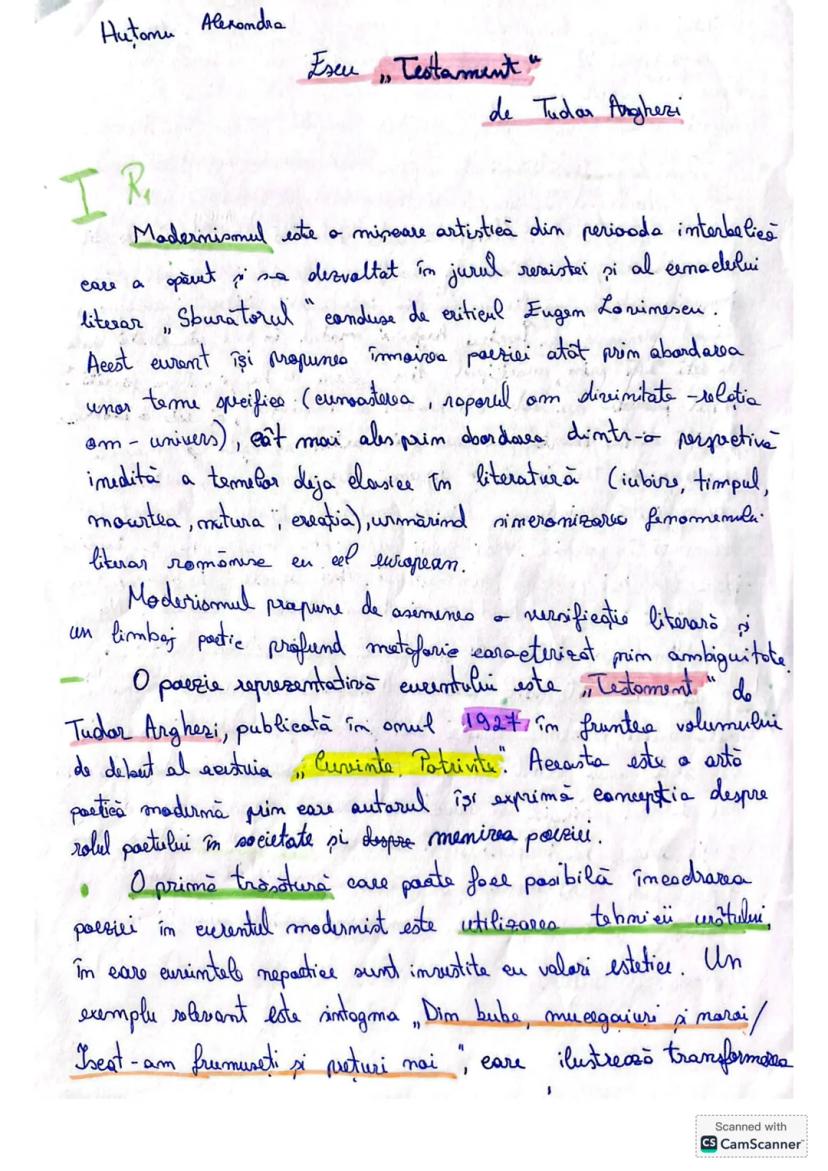 Huțanu Alexandra
Eseu „Testament"
de Tudor Arghezi
I R1
Modernismul este o mișcare artistică din perioada interbelică
care a apărut și s-a dezvoltat în jurul revistei și al cenaclului
literar „Sburătorul" conduse de criticul Eugen Lovinescu.
Acest curent își propunea înnoirea poeziei atât prin abordarea
unor teme specifice (cunoașterea, raporul om divinitate - relația
om - univers), cât mai ales prin abordarea dintr-o perspectivă
inedită a temelor deja clasice în literatură (iubire, timpul,
moartea, natura, creația), urmărind sincronizarea fenomenului
literar românesc cu cel european.
Moderismul propune de asemenea o versificație literară și
un limbaj poetic profund metaforic caracterizat prin ambiguitate.
O poezie reprezentativă curentului este „Testament" de
Tudor Arghezi, publicată în anul 1927, în fruntea volumului
de debut al acestuia „Cuvinte Potrivite". Aceasta este o artă
poetică modernă prin care autorul își exprimă concepția despre
rolul poetului în societate și despre menirea poeziei.
O primă trăsătură care poate face posibilă încadrarea
poeziei în curentul modernist este utilizarea tehnicii urâtului,
în care cuvintele nepoetice sunt investite cu valori estetice. Un
exemplu relevant este sintagma „Din bube, mucegaiuri și noroi/
Iscat-am frumuseți și prețuri noi", care ilustrează transformarea
Scanned with
CS CamScanner